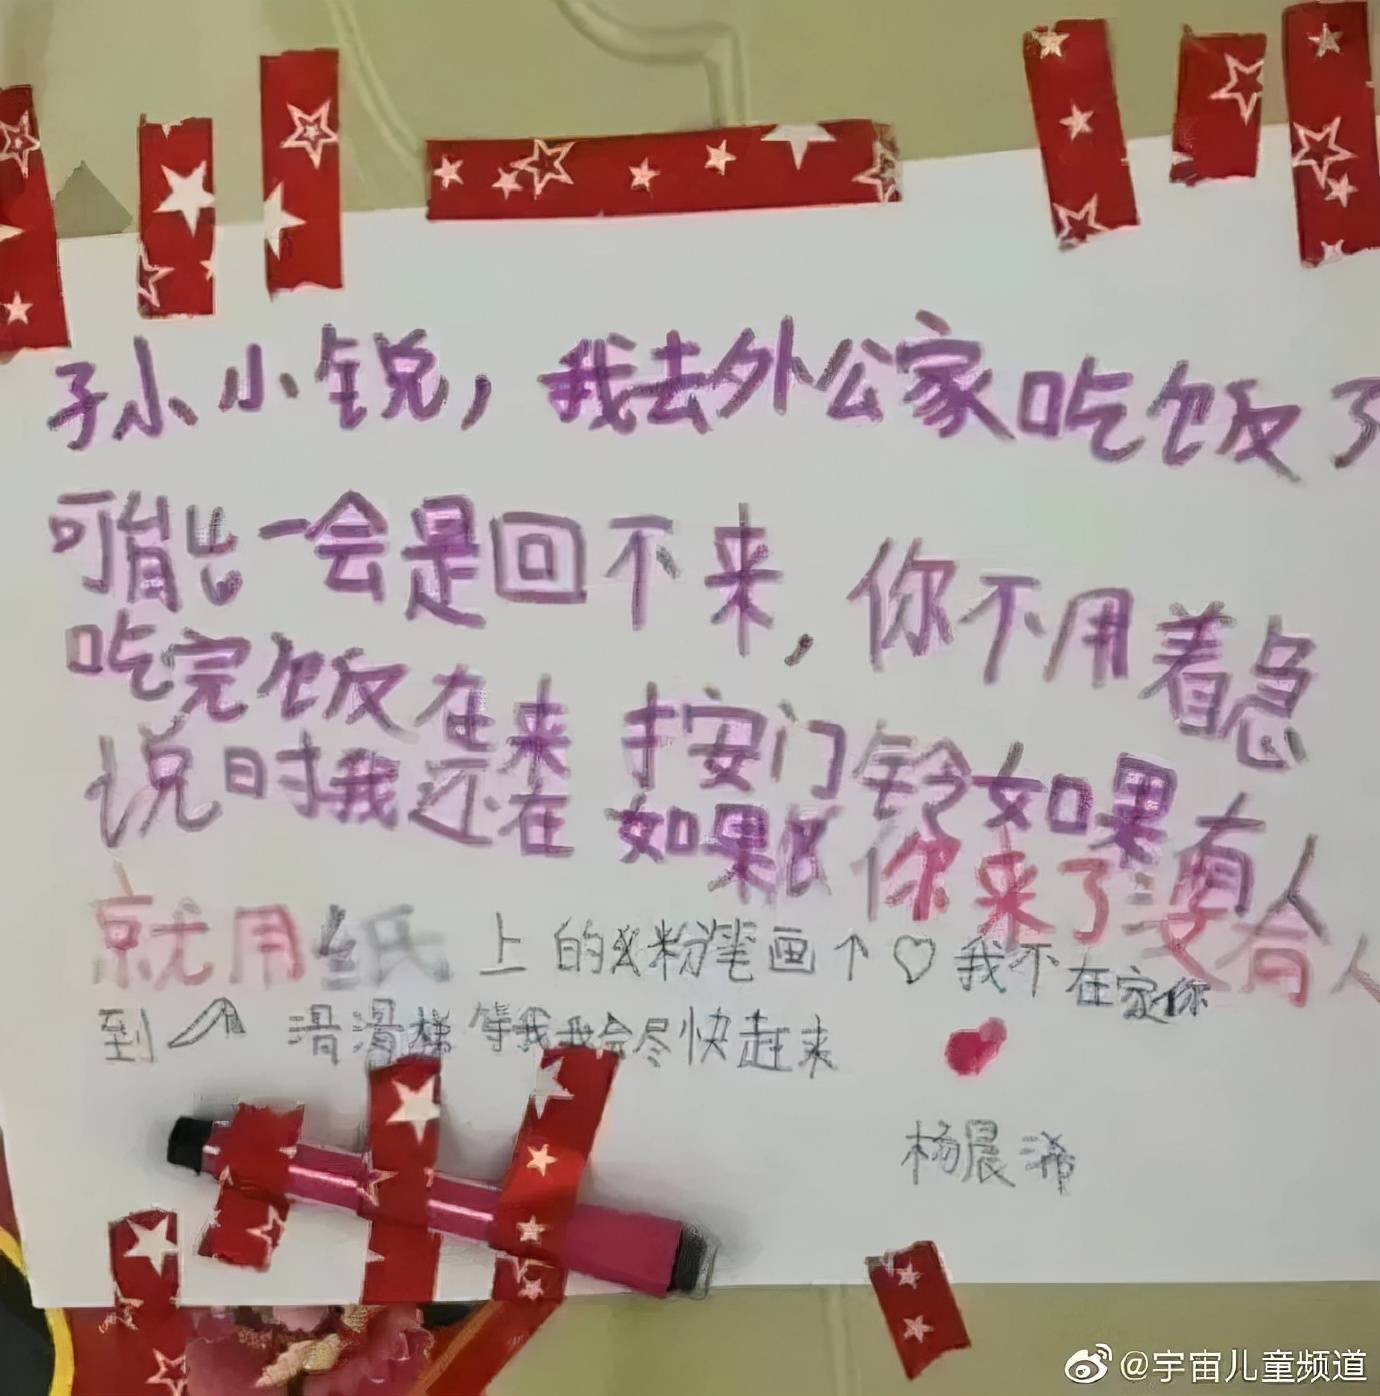 孙小锐，我去外公家吃饭了
可能一会是回不来，你不用着急
吃完饭在来 按门铃如果有人
说时我还在 如果你来了没有人
就用纸上的粉笔画个♡我不在家你
到滑滑梯等我我会尽快赶来
杨晨浠
@宇宙儿童频道